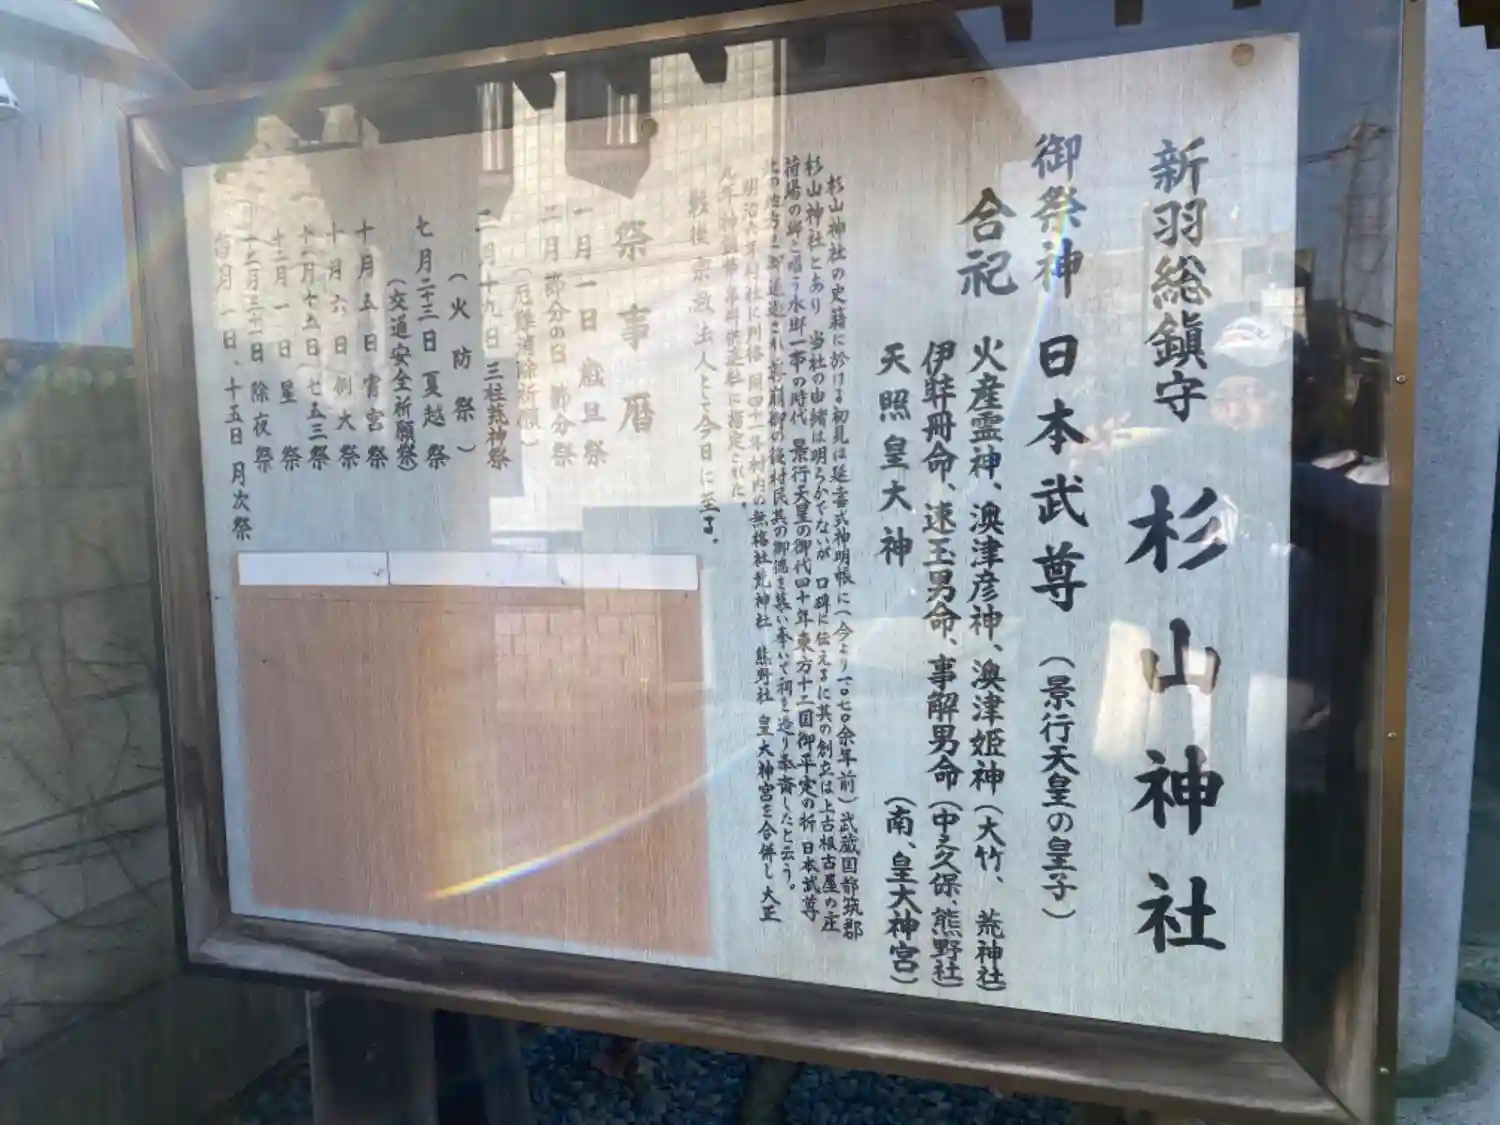 新羽総鎮守 杉山神社
御祭神 日本武尊（景行天皇の皇子）
合祀 火産霊神、澳津彦神、澳津姫神（大竹、荒神社）
伊弉冊命、速玉男命、事解男命（中之久保、熊野社）
天照皇大神（南、皇大神宮）
杉山神社の史籍に於ける初見は延喜式神明帳に（今より一〇七〇余年前）武蔵国都筑郡
杉山神社とあり 当社の由緒は明らかでないが 口碑に伝えるに其の創立は上古根古屋の庄
荷場の郷と唱う水郷一帯の時代 景行天皇の御代四十年東方十二国御平定の折 日本武尊
此の地方を御通過され 崩御の後村民其の御徳を慕い奉いて祠を造り奉斎したと云う。
明治六年村社に列格 同四十一年村内の無格社荒神社 熊野社 皇大神宮を合併し大正
九年神饌幣帛料供進社に指定された。
戦後宗教法人として今日に至る。
祭事暦
一月一日 歳旦祭
二月節分の日 節分祭
（厄難消除祈願）
二月十九日 三柱荒神祭
（火防祭）
七月二十三日 夏越祭
（交通安全祈願祭）
十月五日 宵宮祭
十月六日 例大祭
十一月十五日（七五三祭
十二月一日 星祭
十二月三十一日 除夜祭
毎月一日、十五日 月次祭